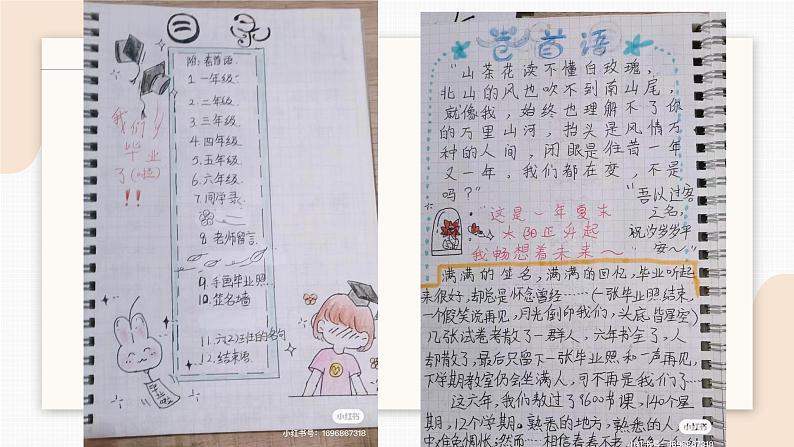 目录
附:卷首语.
1.一年级.
2.二年级.
3.三年级.
4.四年级
5.五年级.
6.六年级.
7.同学录.
8.老师留言.
9.手画毕业照.
10.签名墙
11.六(2)班的名句
12.结束语
我们
毕业
了(啦)
!!
小红书
小红书号:1696867318
卷首语
“山茶花读不懂白玫瑰,
北山的风也吹不到南山尾,
就像我,始终也理解不了你
的万里山河,抬头是风情万
种的人间,闭眼是往昔一年
又一年。我们都在变,不是
吗?”
“吾以过客
之名,
祝汐岁岁平
安~”
这是一年夏末
太阳正升起
我畅想着未来~
满满的签名,满满的回忆,毕业听起
来很好,却总是怀念曾经……(一张毕业照结束,
一个假笑说再见,月光倒印我们,头底皆星空)
几张试卷考散了一群人,六年书全了,人
却散了,最后只留下一张毕业照.和一声再见,
下学期教室仍会坐满人,可不再是我们了…
这六年,我们教过了8600节课,140个星
期,12个学期。熟悉的地方,熟悉的人,
中难免惆怅;然而…相信看着不
小红书
小红书号:1696867318